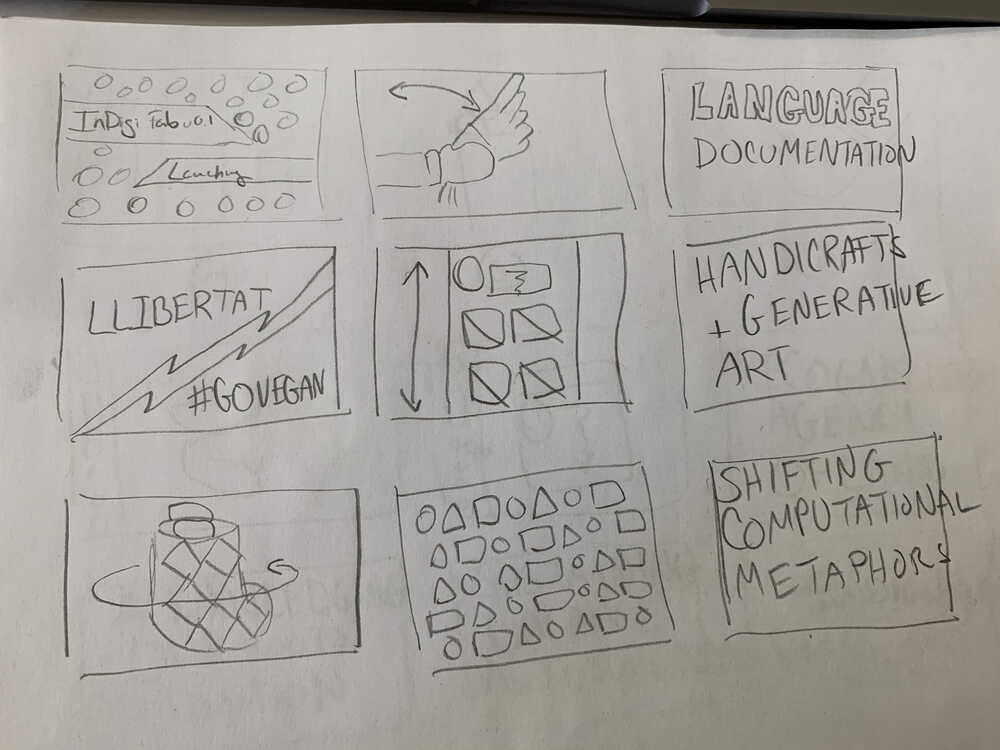 InDigi Fab v0.1
Lauching
LANGUAGE
DOCUMENTATION
LLIBERTAT
#GOVEGAN
HANDICRAFTS
+ GENERATIVE
ART
SHIFTING
COMPUTATIONAL
METAPHORS